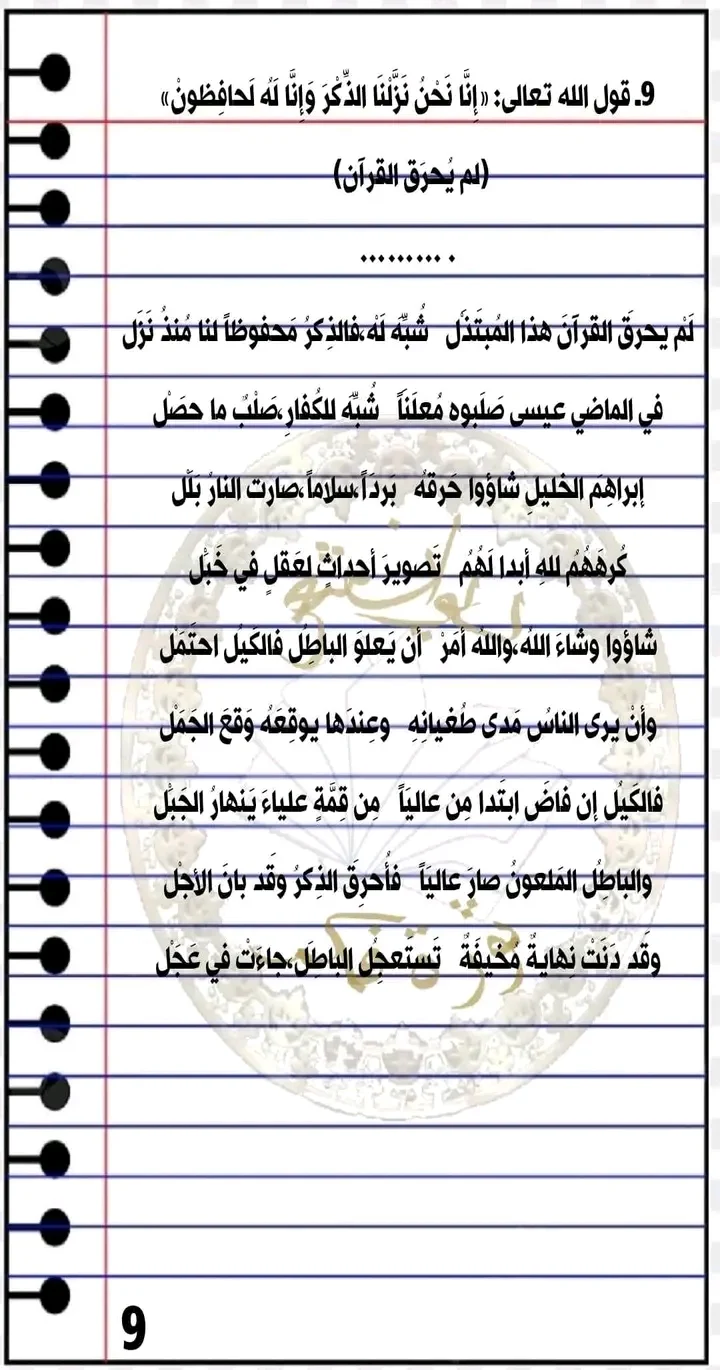 9. قول الله تعالى: «إِنَّا نَحْنُ نَزَّلْنَا الذِّكْرَ وَإِنَّا لَهُ لَحافِظونْ»
(لم يُحرَق القرآن)
. .........
لَمْ يحرقَ القرآنَ هذا المُبتَذَل شُبِّه لَهْ،فالذِكرُ مَحفوظاً لنا مُنذُ نَزَل
في الماضي عيسى صَلَبوه مُعلَنَاً شُبِّه للكُفارِ،صَلْبٌ ما حصَلْ
إبراهِمَ الخليلِ شاؤوا حَرقهُ بَردَاً،سلاماً،صارت النارُ بَلَل
كُرهَهُمُ للهِ أبدا لَهُمُ تَصويرَ أحداثٍ لعَقلٍ في خَبْل
شاؤوا وشاءَ اللهُ،واللهُ أمَرْ أن يَعلوَ الباطِلُ فالكَيلُ احتَمَلْ
وأنْ يرى الناسُ مَدى طُغيانِهِ وعِندَها يوقِعَهُ وَقعَ الجَمَلْ
فالكَيلُ إن فاضَ ابتَدا مِن عاليَاً مِن قِمَّةٍ علياءَ يَنهارُ الجَبْل
والباطِلُ المَلعونُ صارَ عاليَاً فأُحرِقَ الذِكرُ وقَد بانَ الأجْل
وقَد دَنَتْ نهايةٌ مُخيفَةٌ تَستَعجِلُ الباطِلَ،جاءَتْ في عَجَلْ
9